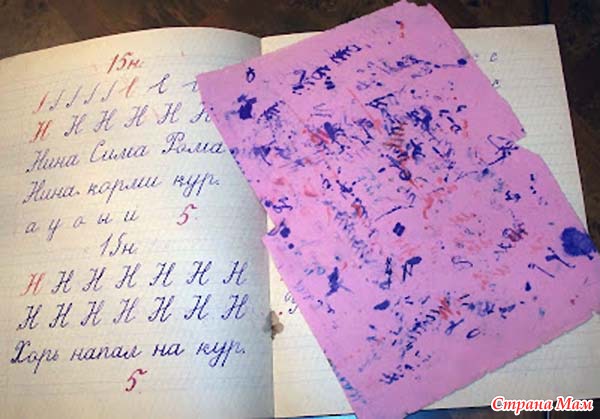 15н.
Н Н Н Н Н Н
Нина Сима Рома
Нина корми кур.
а у о ы и 5.
15н.
Н Н Н Н Н Н Н Н
Н Н Н Н Н Н Н
Хорь напал на кур.
5.
Страна Мам